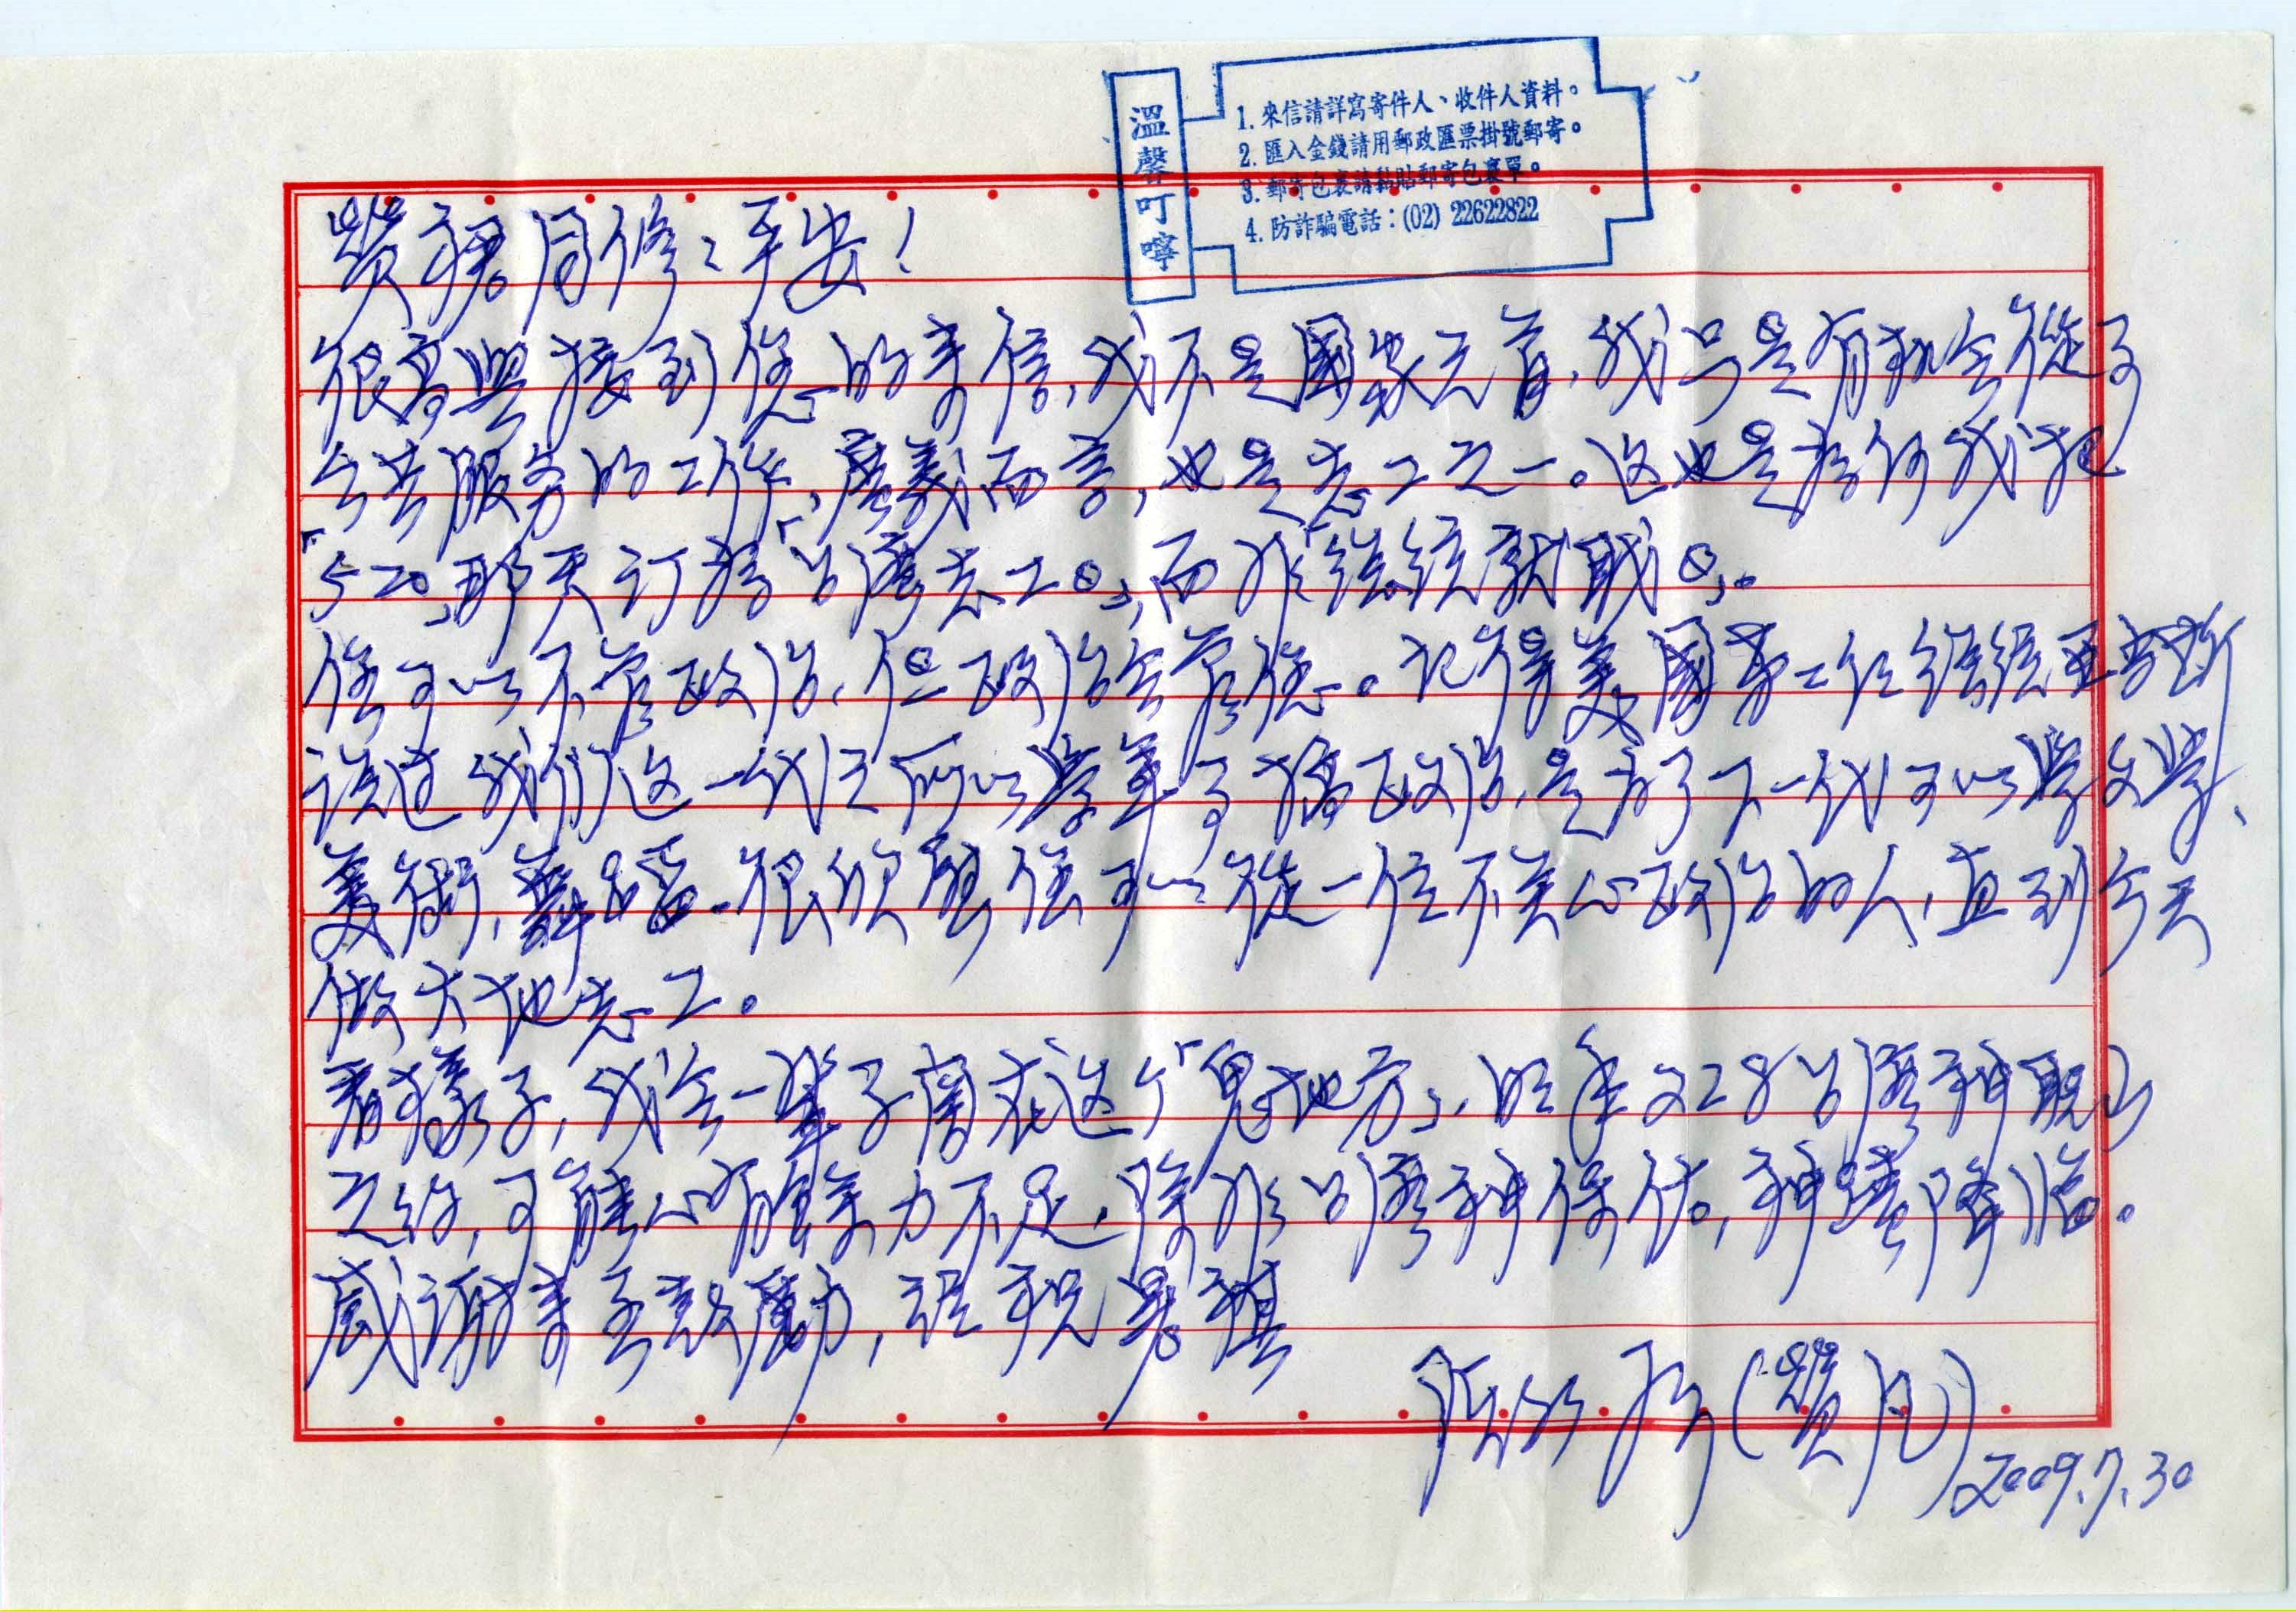 溫馨叮嚀
1. 來信請詳寫寄件人、收件人資料。
2. 匯入金錢請用郵政匯票掛號郵寄。
3. 郵寄包裹請黏貼郵寄包裹單。
4. 防詐騙電話：(02) 22622822
同修：平安！
很高興接到您的來信，我不是國家元首，我只是有機會從事
公共服務的工作，廣義而言，也是志工之一。這也是為何我把
「520」那天訂為「台灣志工日」，而非「總統就職日」。
您可以不管政治，但政治會管您。記得美國第二任總統亞當斯
說過我們這一代之所以學軍事搞政治，是為了下一代可以學文學、
美術，舞蹈。很欣慰您可以從一位不關心政治的人，直到今天
做大地志工。
看樣子，我會一輩子關在這个「鬼地方」，明年228台灣神
之約，可能心有餘力不足，除非台灣神保佑，神蹟降臨。
感謝來函鼓勵，謹祝
2009.7.30